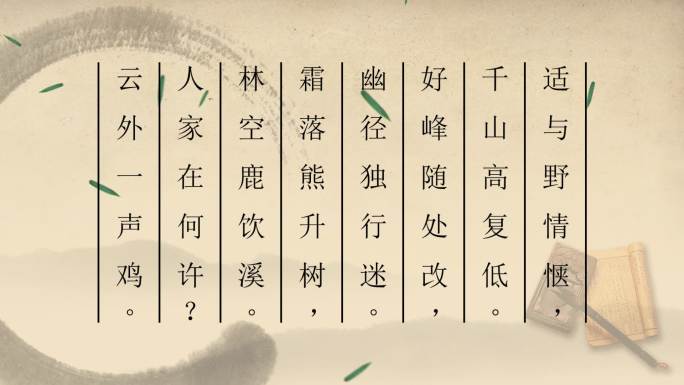 适与野情惬，
千山高复低。
好峰随处改，
幽径独行迷。
霜落熊升树，
林空鹿饮溪。
人家在何许？
云外一声鸡。